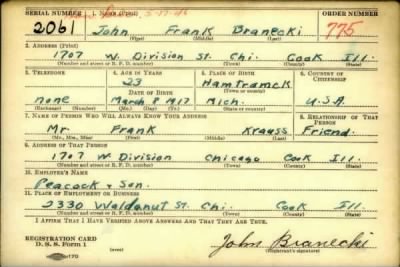 SERIAL NUMBER 1. NAME (Print) ORDER NUMBER
2061 John Frank Branecki 775
(First) (Middle) (Last)
2. ADDRESS (Print)
1707 W. Division St. Chi. Cook Ill.
(Number and street or R. F. D. number) (Town) (County) (State)
3. TELEPHONE 4. AGE IN YEARS 5. PLACE OF BIRTH 6. COUNTRY OF CITIZENSHIP
23 Hamtramck
DATE OF BIRTH (Town or county)
none March 8 1917 Mich. U.S.A.
(Exchange) (No.) (Mo.) (Day) (Yr.) (State or country)
7. NAME OF PERSON WHO WILL ALWAYS KNOW YOUR ADDRESS 8. RELATIONSHIP OF THAT PERSON
Mr. Frank Krauss Friend.
(Mr., Mrs., Miss) (First) (Middle) (Last)
9. ADDRESS OF THAT PERSON
1707 W Division Chicago Cook Ill.
(Number and street or R. F. D. number) (Town) (County) (State)
10. EMPLOYER'S NAME
Peacock & Son.
11. PLACE OF EMPLOYMENT OR BUSINESS
2330 Waldanut St. Chi. Cook Ill.
(Number and street or R. F. D. number) (Town) (County) (State)
I AFFIRM THAT I HAVE VERIFIED ABOVE ANSWERS AND THAT THEY ARE TRUE.
REGISTRATION CARD
D. S. S. Form 1 (over) John Branecki
(Registrant's signature)